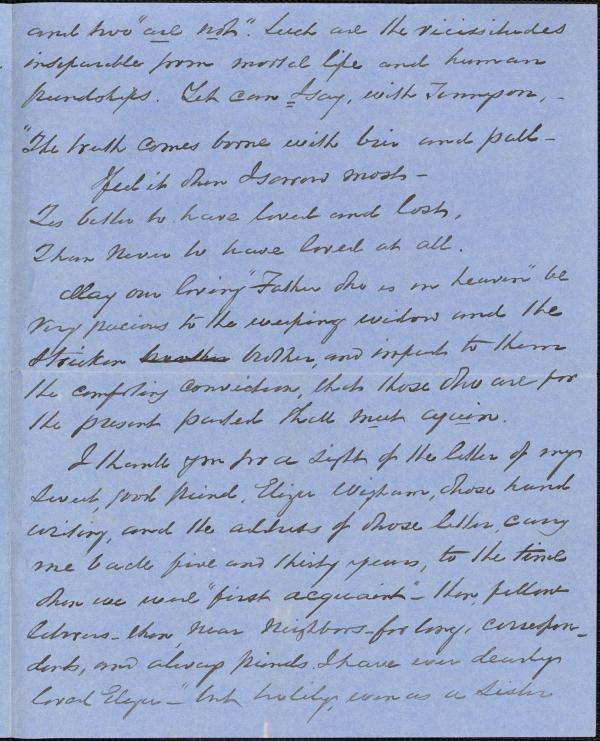 and two "are not". Such are the vicissitudes
inseparable from mortal life and human
friendships. Yet can I say, with Tennyson, –
"The truth comes borne with bier and pall –
I feel it when I sorrow most –
Tis better to have loved and lost,
Than never to have loved at all.
May our loving "Father who is in heaven" be
very precious to the weeping widow and the
stricken brother, and impart to them
the comforting conviction, that those who are for
the present parted shall meet again.
I thank you for a sight of the letter of my
sweet, good friend, Eliza Wigham, whose hand
writing, and the address of whose letter, carry
me back five and thirty years, to the time
when we were "first acquaint" – then, fellow
laborers – then, near neighbors – for long, correspon-
dents, and always friends. I have ever dearly
loved Eliza – but holily, even as a sister